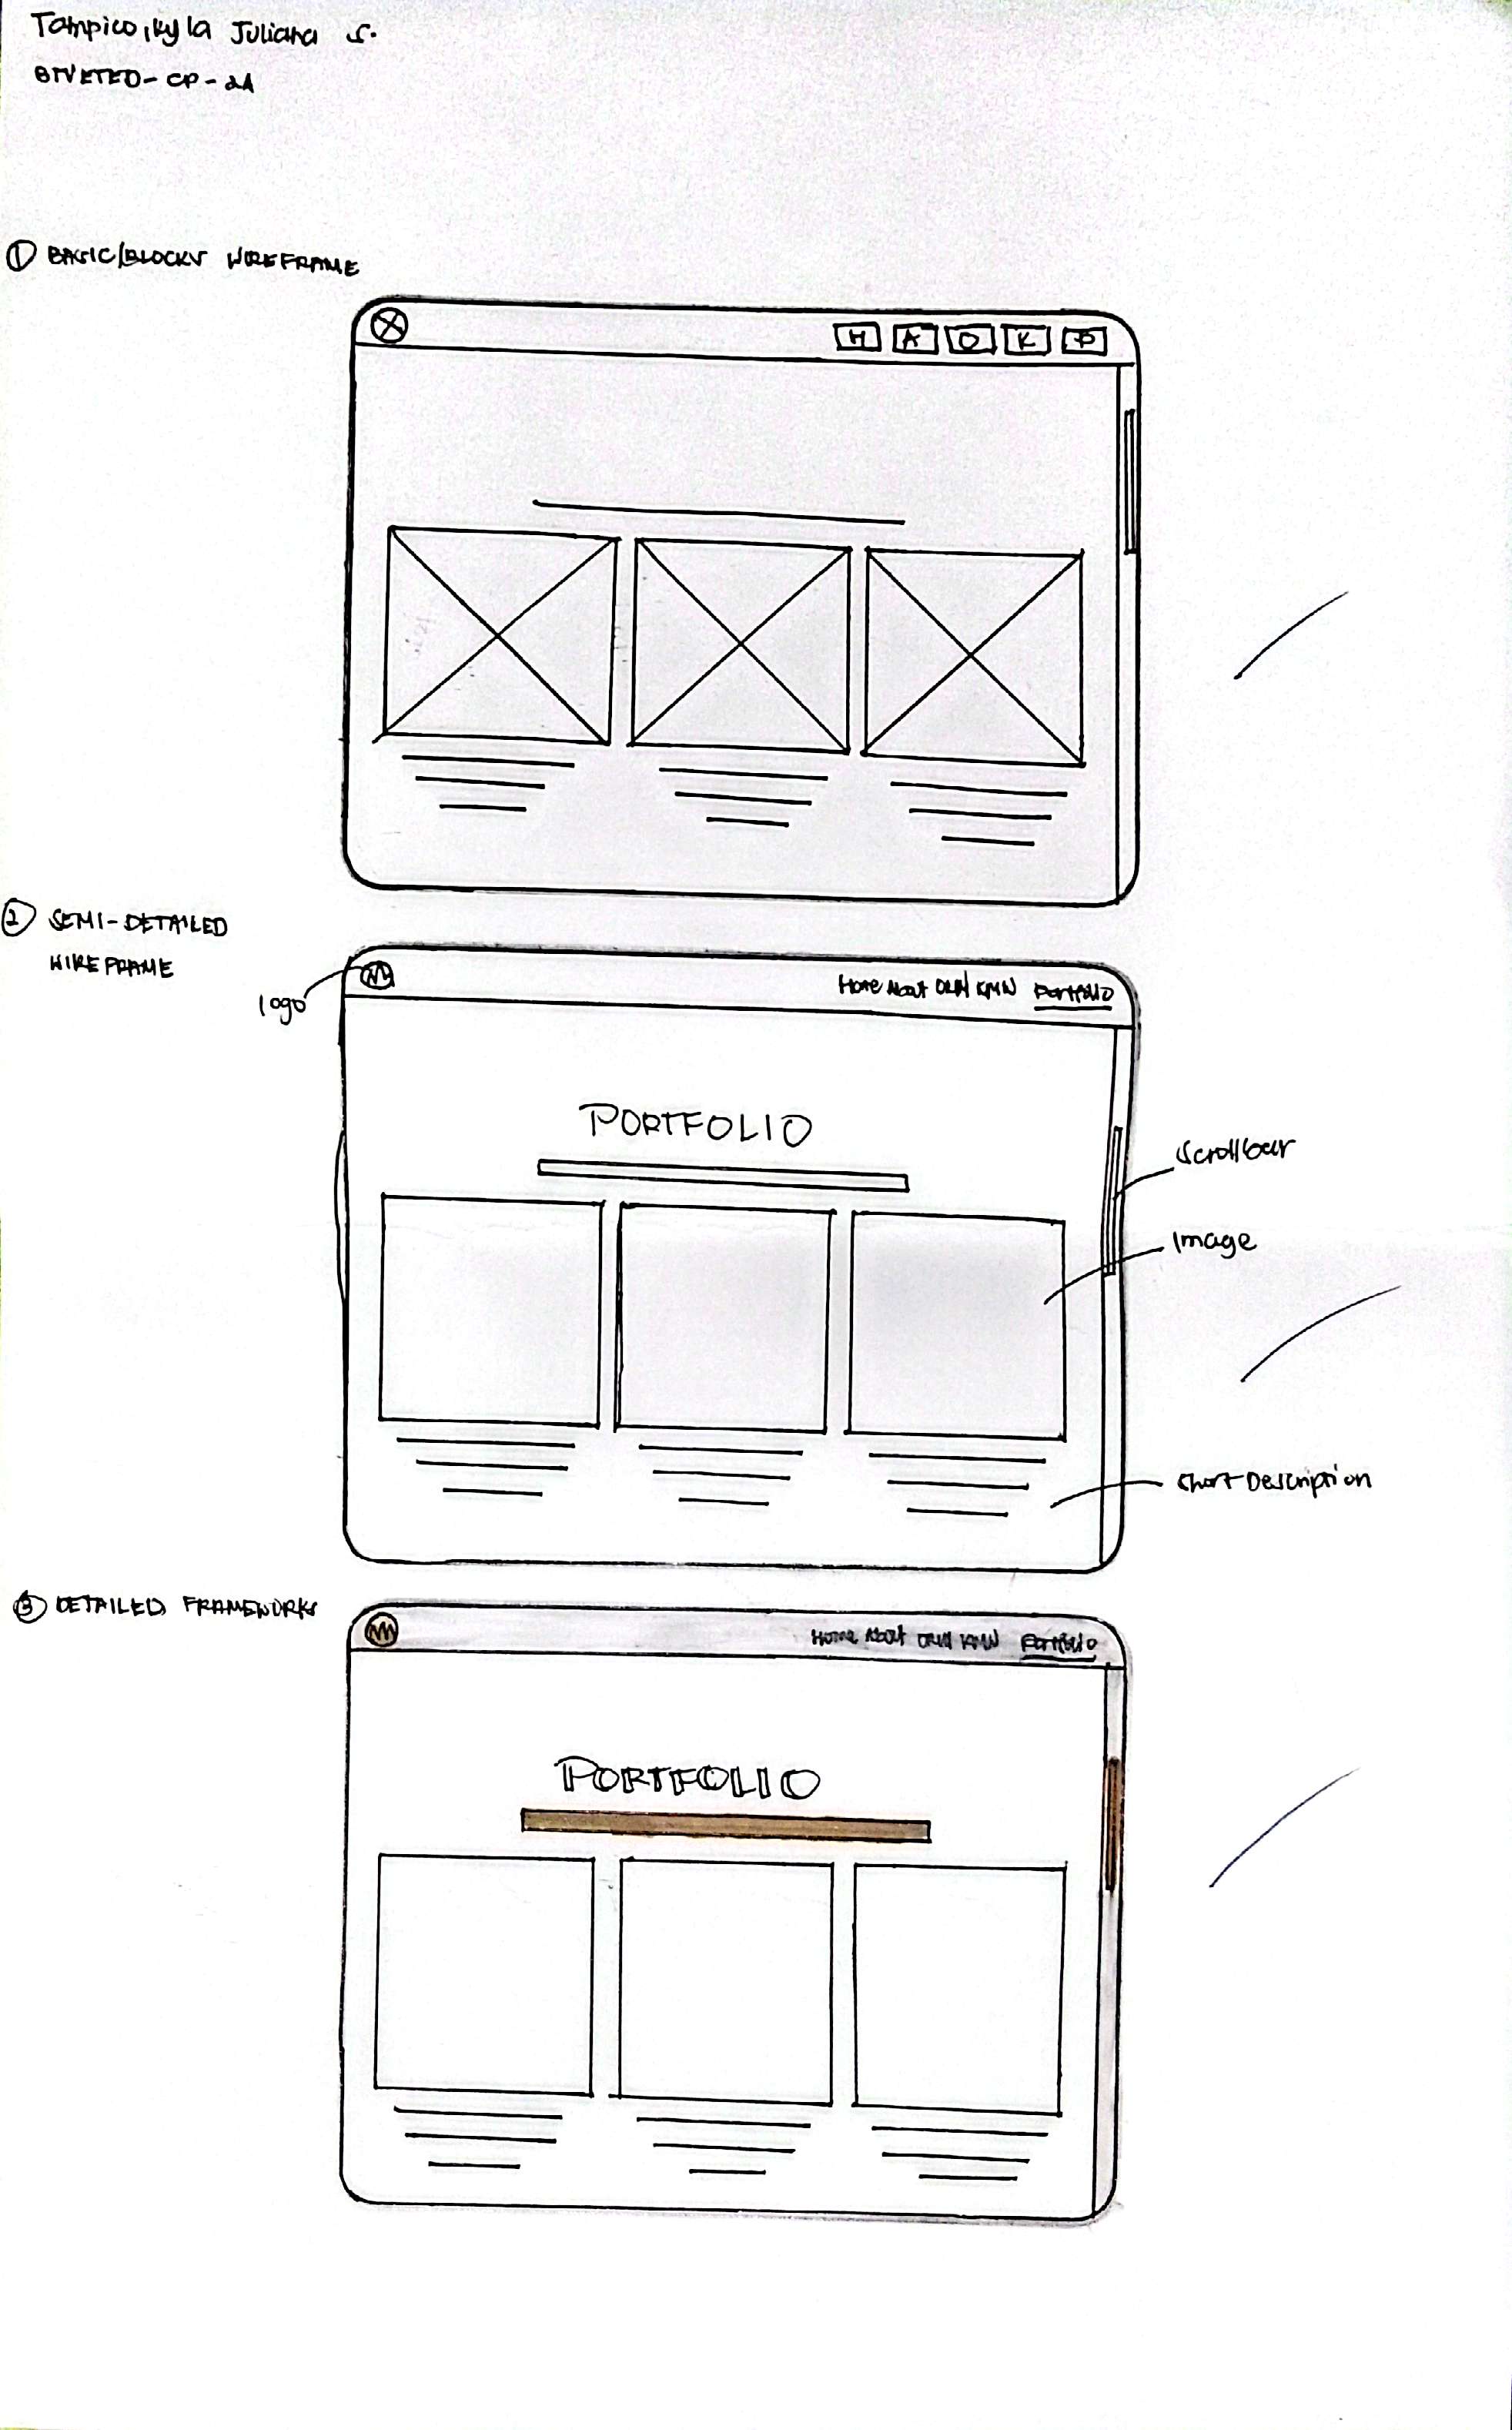 Tampico, Kyla Juliana S.
BTVETED-CP-2A
① BASIC/BLOCKS WIREFRAME
H A O K P
② SEMI-DETAILED
WIREFRAME
logo
Home About ORM KMN Portfolio
PORTFOLIO
Scrollbar
Image
Short Description
③ DETAILED FRAMEWORKS
Home About ORM KMN Portfolio
PORTFOLIO